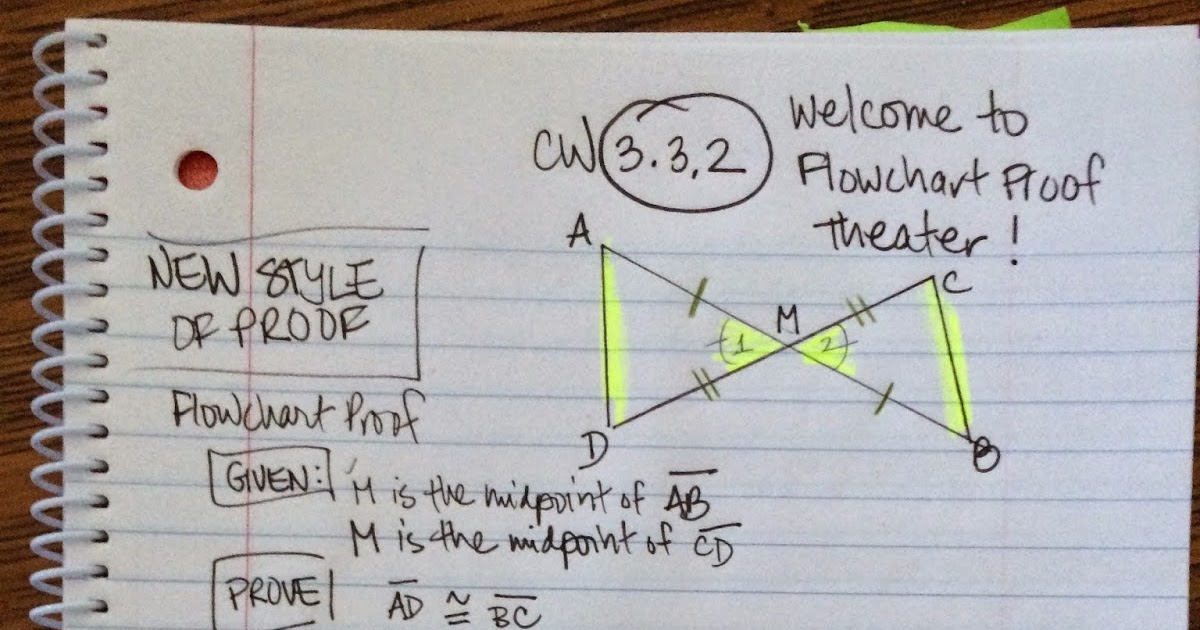 CW 3.3.2
Welcome to
Flowchart Proof
theater!
NEW STYLE
OF PROOF
A
C
M
1
2
D
B
Flowchart Proof
GIVEN: M is the midpoint of AB
M is the midpoint of CD
PROVE AD ≅ BC